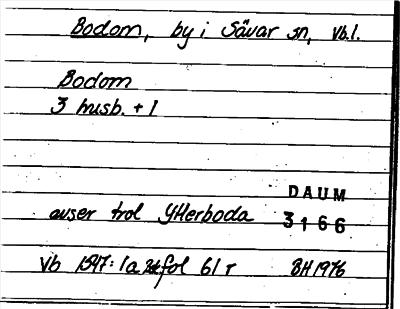 Bodom, by i Sävar sn, Vb.l.
Bodom
3 husb. + 1
DAUM
avser trol Ytterboda 3166
Vb 1547: 1a fol 61 r BH 1976